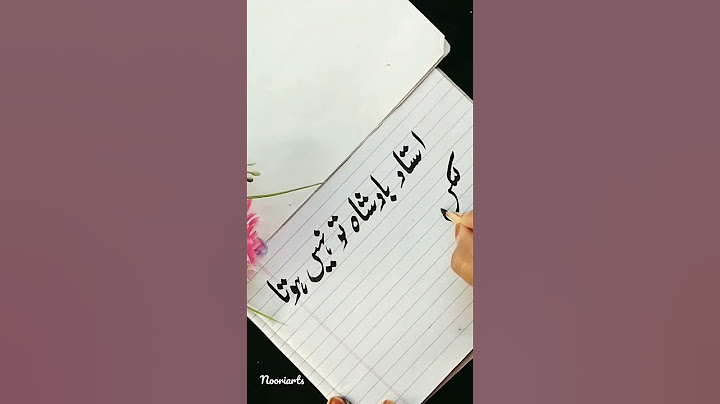 استاد بادشاہ تو نہیں ہوتا
Nooriarts